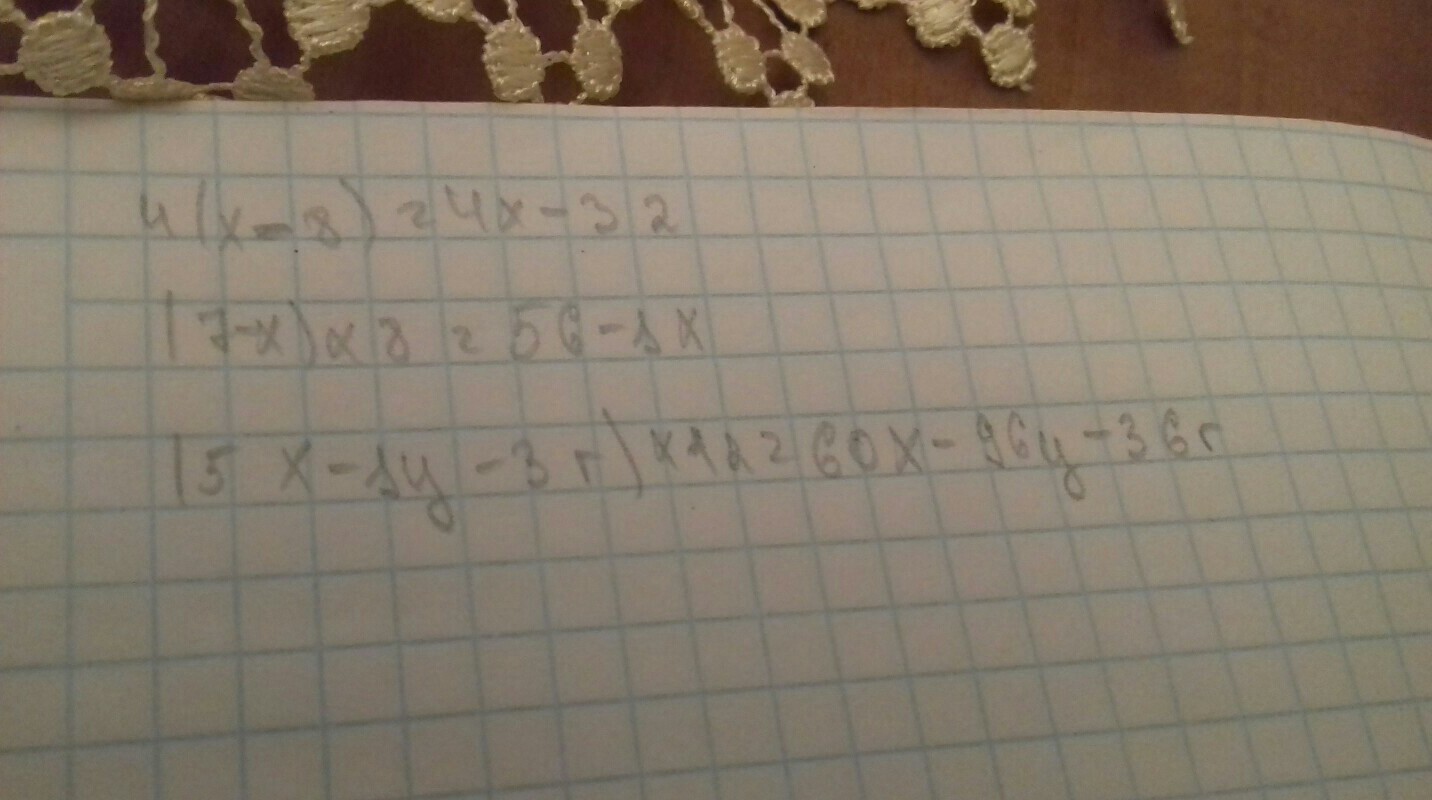 4(x-8)=4x-32
(7-x)×8=56-8x
(5x-8y-3г)×12=60x-96y-36г